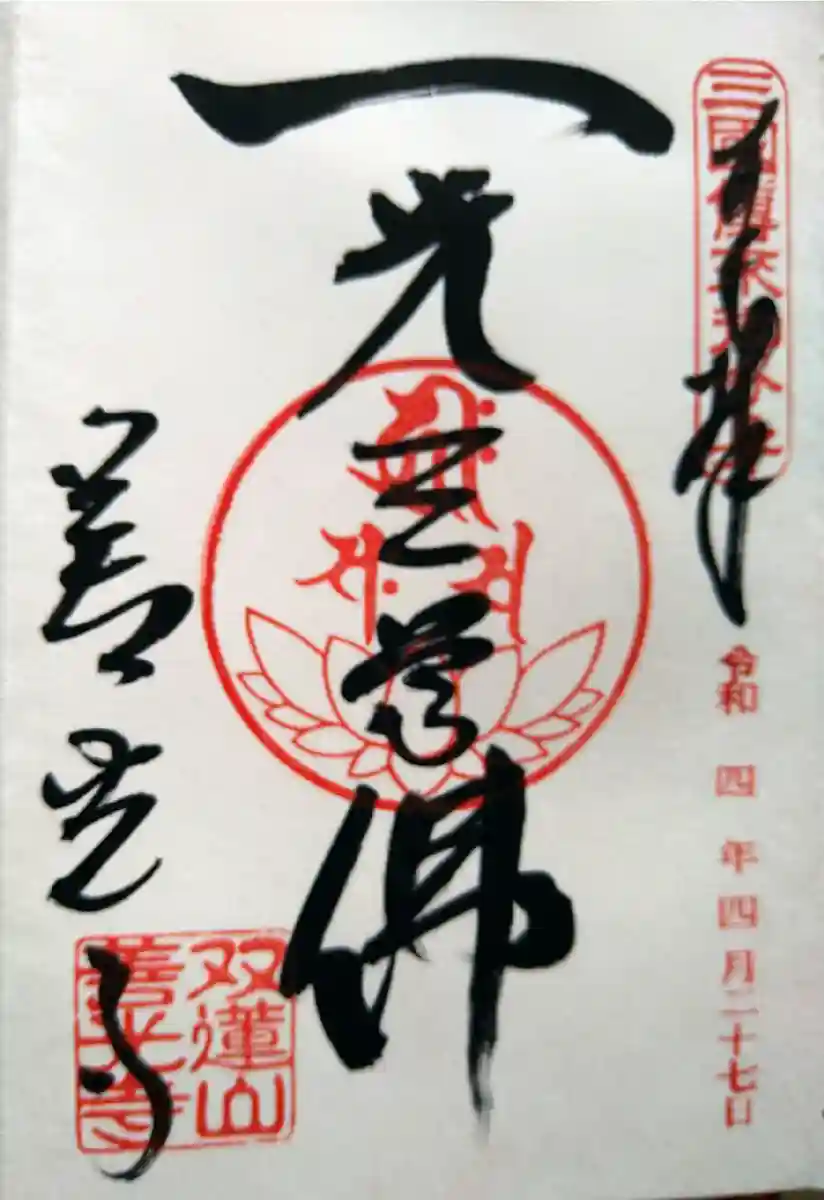 三國傳来
奉拝
令和 四 年 四 月 二十七日
一光三尊佛
善光寺
双蓮山
善光寺